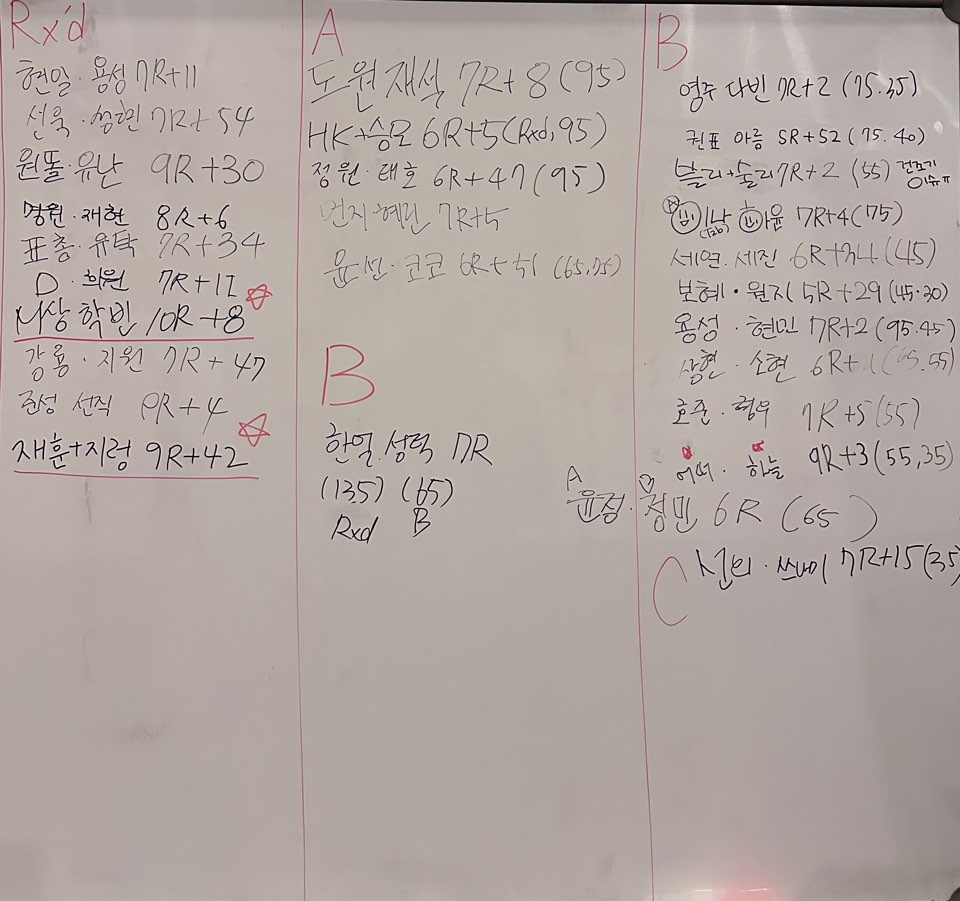 Rx'd
현일·용성 7R+11
선욱·성현 7R+54
원똘·유난 9R+30
경원·재현 8R+6
표총·유탁 7R+34
D·희원 7R+17
학빈 10R+8
강용·지원 7R+47
준성 선직 8R+4
재훈+지렁 9R+42
A
도원 재석 7R+8 (95)
HK+승모 6R+5 (Rxd, 95)
정원·태호 6R+47 (95)
먼지·혜린 7R+5
윤선·코코 6R+51 (65.75)
B
한얼·성탁 7R
(135) (65)
Rxd B
B
영주 다빈 7R+2 (75.35)
권표 아름 5R+52 (75.40)
블리+둘리 7R+2 (55)
하윤 7R+4 (75)
세연·세진 6R+34 (45)
보혜·원지 5R+29 (45·30)
용성·현민 7R+2 (95.45)
상현·소현 6R+1 (95.55)
호준·형우 7R+5 (55)
어떠·하늘 9R+3 (55,35)
A B
윤정·정민 6R (65)
C
7R+15 (35)